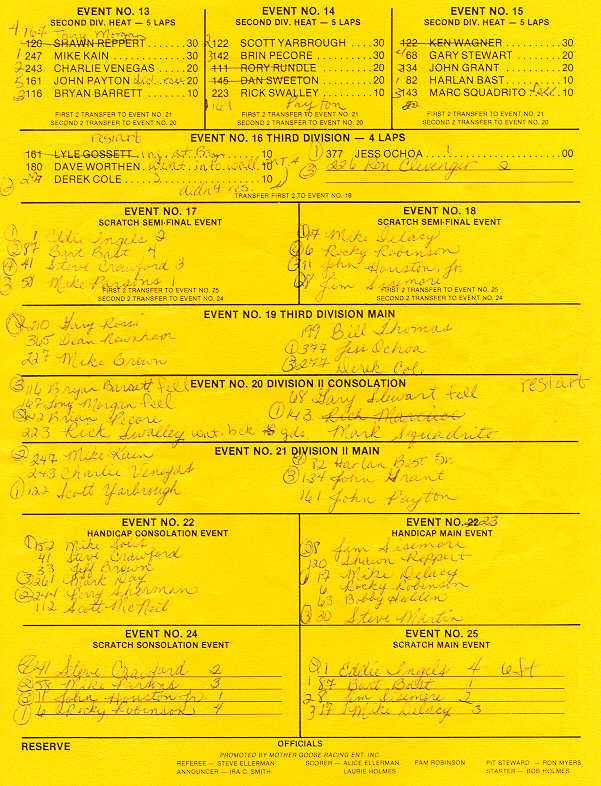 EVENT NO. 13
SECOND DIV. HEAT — 5 LAPS
4 167 Tony Morgan
120 SHAWN REPPERT 30
1 247 MIKE KAIN 30
2 243 CHARLIE VENEGAS 20
5 161 JOHN PAYTON 20
3 116 BRYAN BARRETT 10
FIRST 2 TRANSFER TO EVENT NO. 21
SECOND 2 TRANSFER TO EVENT NO. 20
EVENT NO. 14
SECOND DIV. HEAT — 5 LAPS
2 122 SCOTT YARBROUGH 30
3 142 BRIN PECORE 30
111 RORY RUNDLE 20
145 DAN SWEETON 20
223 RICK SWALLEY 10
161 Payton
FIRST 2 TRANSFER TO EVENT NO. 21
SECOND 2 TRANSFER TO EVENT NO. 20
EVENT NO. 15
SECOND DIV. HEAT — 5 LAPS
122 KEN WAGNER 30
4 68 GARY STEWART 20
2 134 JOHN GRANT 20
1 82 HARLAN BAST 10
3 143 MARC SQUADRITO fell 10
FIRST 2 TRANSFER TO EVENT NO. 21
SECOND 2 TRANSFER TO EVENT NO. 20
restart
EVENT NO. 16 THIRD DIVISION — 4 LAPS
161 LYLE GOSSETT 10
180 DAVE WORTHEN went into wall 10
227 DEREK COLE 10
didn't res.
1 377 JESS OCHOA 00
3 226 Ron Clevenger 2
TRANSFER FIRST 2 TO EVENT NO. 19
EVENT NO. 17
SCRATCH SEMI-FINAL EVENT
1 1 Eddie Ingels 2
2 87 Bart Bast 4
4 41 Steve Crawford 3
3 58 Mike Parsons 1
FIRST 2 TRANSFER TO EVENT NO. 25
SECOND 2 TRANSFER TO EVENT NO. 24
EVENT NO. 18
SCRATCH SEMI-FINAL EVENT
1 17 Mike Delacy
6 Rocky Robinson
3 11 John Houston, Jr.
28 Jim Sisemore
FIRST 2 TRANSFER TO EVENT NO. 25
SECOND 2 TRANSFER TO EVENT NO. 24
EVENT NO. 19 THIRD DIVISION MAIN
2 210 Gary Ross
365 Dean Newnham
227 Mike Green
199 Bill Thomas
1 377 Jess Ochoa
3 277 Derek Cole
EVENT NO. 20 DIVISION II CONSOLATION
restart
3 116 Bryan Barrett fell
167 Tony Morgan fell
2 142 Brian Pecore
223 Rick Swalley went bck
68 Gary Stewart fell
1 143
Mark Squadrito
EVENT NO. 21 DIVISION II MAIN
2 247 Mike Kain
243 Charlie Venegas
1 122 Scott Yarbrough
4 82 Harlan Bast Sr.
3 134 John Grant
161 John Payton
EVENT NO. 22
HANDICAP CONSOLATION EVENT
1 152 Mike Solis
41 Steve Crawford
33 Jeff Brown
3 261 Mark Day
2 244 Perry Sherman
112 Scott McNeil
EVENT NO. 22 23
HANDICAP MAIN EVENT
2 28 Jim Sisemore
120 Shawn Reppert
1 17 Mike Delacy
6 Rocky Robinson
63 Bobby Hedden
3 20 Steve Martin
EVENT NO. 24
SCRATCH SONSOLATION EVENT
41 Steve Crawford 2
2 58 Mike Parsons 3
3 11 John Houston Jr 1
1 6 Rocky Robinson 4
EVENT NO. 25
SCRATCH MAIN EVENT
1 Eddie Ingels 4 left
1 87 Bart Bast 1
2 8 Jim Sisemore 2
3 17 Mike Delacy 3
RESERVE
OFFICIALS
PROMOTED BY MOTHER GOOSE RACING ENT. INC.
REFEREE — STEVE ELLERMAN
SCORER — ALICE ELLERMAN
PAM ROBINSON
PIT STEWARD — RON MYERS
ANNOUNCER — IRA C. SMITH
LAURIE HOLMES
STARTER — BOB HOLMES